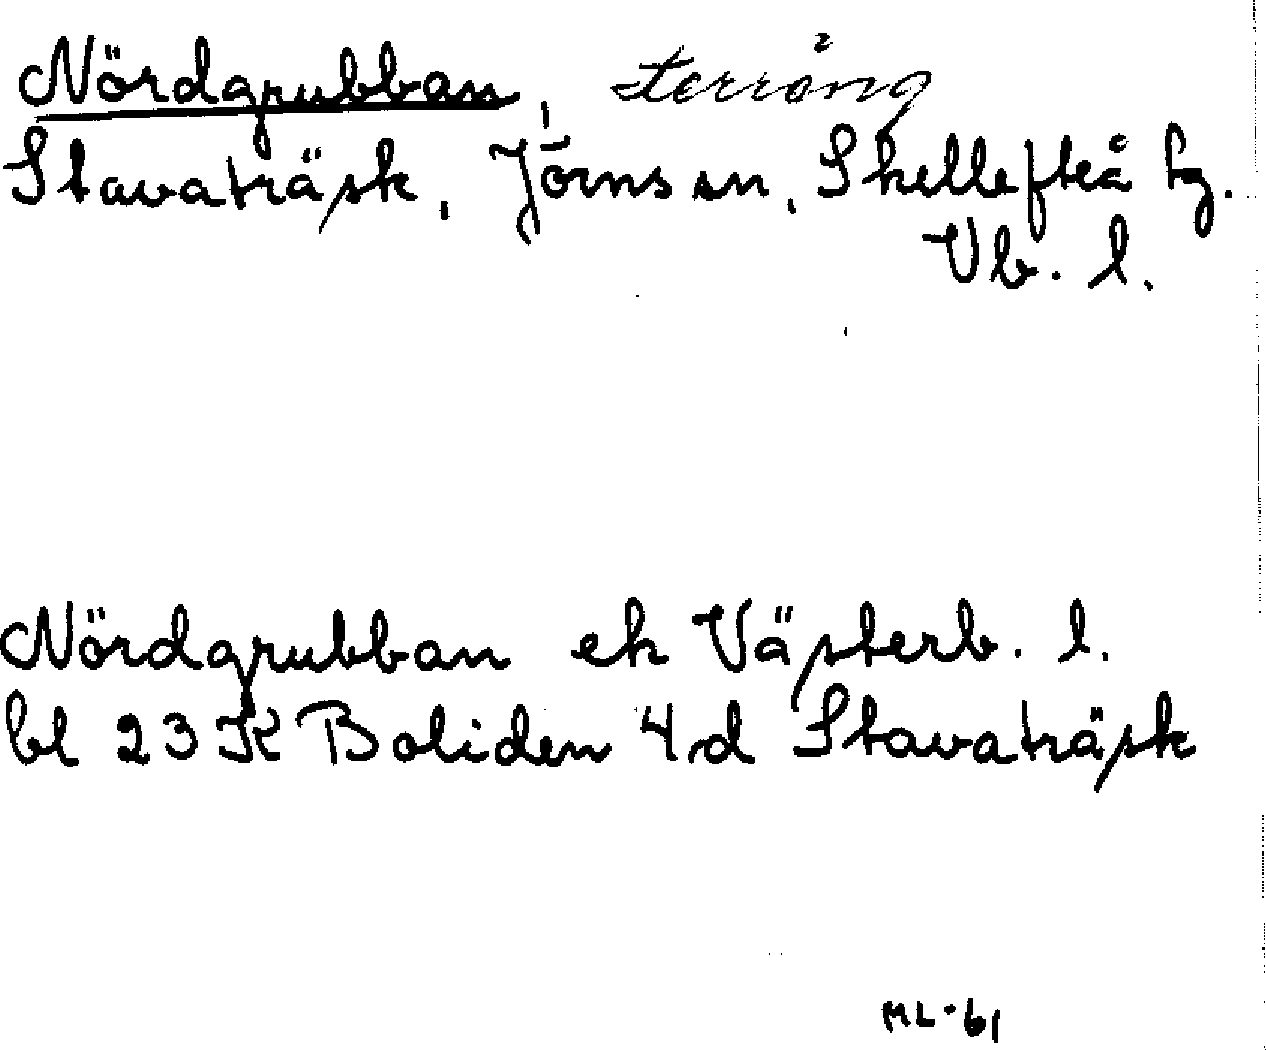 Nördgrubban, terräng
Stavaträsk, Jörns sn, Skellefteå tg.
Vb. l.
Nördgrubban ek Västerb. l.
bl 23 K Boliden 4d Stavaträsk
ML-61